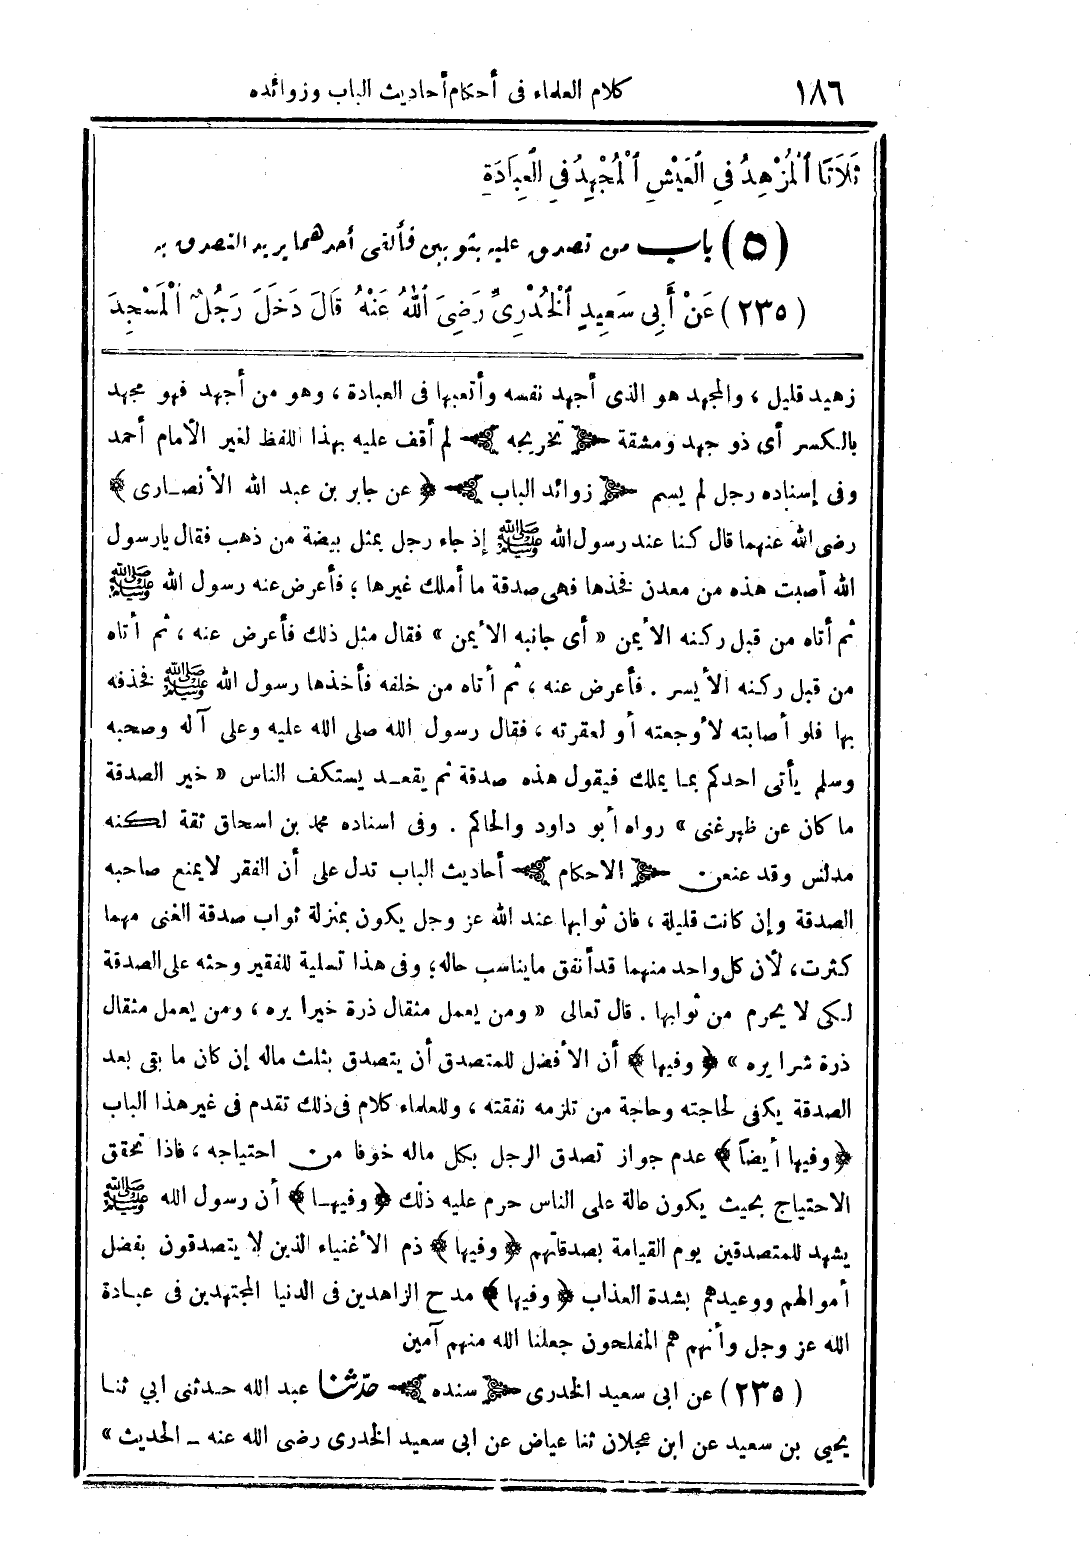 ١٨٦ كلام العلماء فى أحكام أحاديث الباب وزوائده
ثَلَاثًا اَلْمُزْهِدُ فِي الْعَيْشِ اَلْمُجْهِدُ فِي الْعِبَادَةِ
(٥) باب من تصدق عليه بثوبين فألقى أحدهما يريد التصدق به
(٢٣٥) عَنْ أَبِى سَعِيدٍ الْخُدْرِىِّ رَضِىَ اللهُ عَنْهُ قَالَ دَخَلَ رَجُلٌ اَلْمَسْجِدَ
زهيد قليل ، والمجهد هو الذى أجهد نفسه وأتعبها فى العبادة ، وهو من أجهد فهو مجهد
بالكسر أى ذو جهد ومشقة ﴿ تخريجه ﴾ لم أقف عليه بهذا اللفظ لغير الأمام أحمد
وفى إسناده رجل لم يسم ﴿ زوائد الباب ﴾ ﴿ عن جابر بن عبد الله الأنصارى ﴾
رضى الله عنهما قال كنا عند رسول الله ﷺ إذ جاء رجل بمثل بيضة من ذهب فقال يارسول
الله أصبت هذه من معدن فخذها فهى صدقة ما أملك غيرها ؛ فأعرض عنه رسول الله ﷺ
ثم أتاه من قبل ركنه الأيمن « أى جانبه الأيمن » فقال مثل ذلك فأعرض عنه ، ثم أتاه
من قبل ركنه الأيسر . فأعرض عنه ، ثم أتاه من خلفه فأخذها رسول الله ﷺ فخذفه
بها فلو أصابته لأوجعته أو لعقرته ، فقال رسول الله صلى الله عليه وعلى آله وصحبه
وسلم يأتى احدكم بما يملك فيقول هذه صدقة ثم يقعد يستكف الناس « خير الصدقة
ما كان عن ظهر غنى » رواه أبو داود والحاكم . وفى اسناده محمد بن اسحاق ثقة لكنه
مدلس وقد عنعن ﴿ الاحكام ﴾ أحاديث الباب تدل على أن الفقر لايمنع صاحبه
الصدقة وإن كانت قليلة ، فان ثوابها عند الله عز وجل يكون بمنزلة ثواب صدقة الغنى مهما
كثرت، لأن كل واحد منهما قد أنفق مايناسب حاله؛ وفى هذا تسلية للفقير وحثه على الصدقة
لكى لا يحرم من ثوابها . قال تعالى « ومن يعمل مثقال ذرة خيرا يره ، ومن يعمل مثقال
ذرة شرا يره » ﴿ وفيها ﴾ أن الأفضل للمتصدق أن يتصدق بثلث ماله إن كان ما بقى بعد
الصدقة يكفى لحاجته وحاجة من تلزمه نفقته ، وللعلماء كلام فى ذلك تقدم فى غير هذا الباب
﴿ وفيها أيضاً ﴾ عدم جواز تصدق الرجل بكل ماله خوفا من احتياجه ، فاذا تحقق
الاحتياج بحيث يكون عالة على الناس حرم عليه ذلك ﴿ وفيها ﴾ أن رسول الله ﷺ
يشهد للمتصدقين يوم القيامة بصدقاتهم ﴿ وفيها ﴾ ذم الأغنياء الذين لا يتصدقون بفضل
أموالهم ووعيدهم بشدة العذاب ﴿ وفيها ﴾ مدح الزاهدين فى الدنيا المجتهدين فى عبادة
الله عز وجل وأنهم هم المفلحون جعلنا الله منهم آمين
(٢٣٥) عن ابى سعيد الخدرى ﴿ سنده ﴾ حدّثنا عبد الله حدثنى ابي ثنا
يحيى بن سعيد عن ابن عجلان ثنا عياض عن ابى سعيد الخدرى رضى الله عنه ــ الحديث »